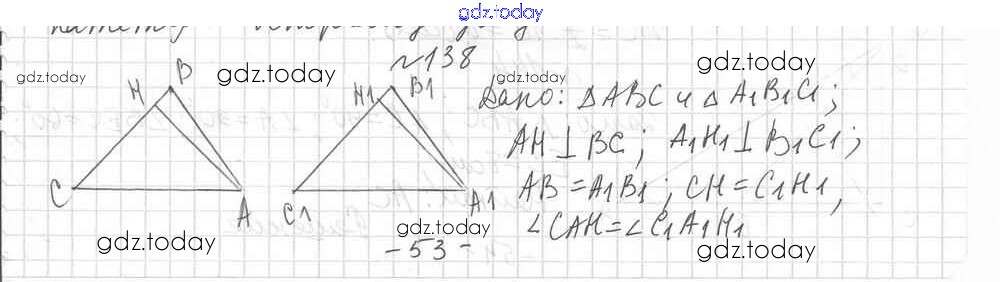 gdz.today
№138
gdz.today gdz.today gdz.today gdz.today
B B1
H H1
Дано: △ABC и △A1B1C1;
AH⊥BC; A1H1⊥B1C1;
AB=A1B1; CH=C1H1,
C A C1 A1
∠CAH=∠C1A1H1
gdz.today gdz.today gdz.today
-53-